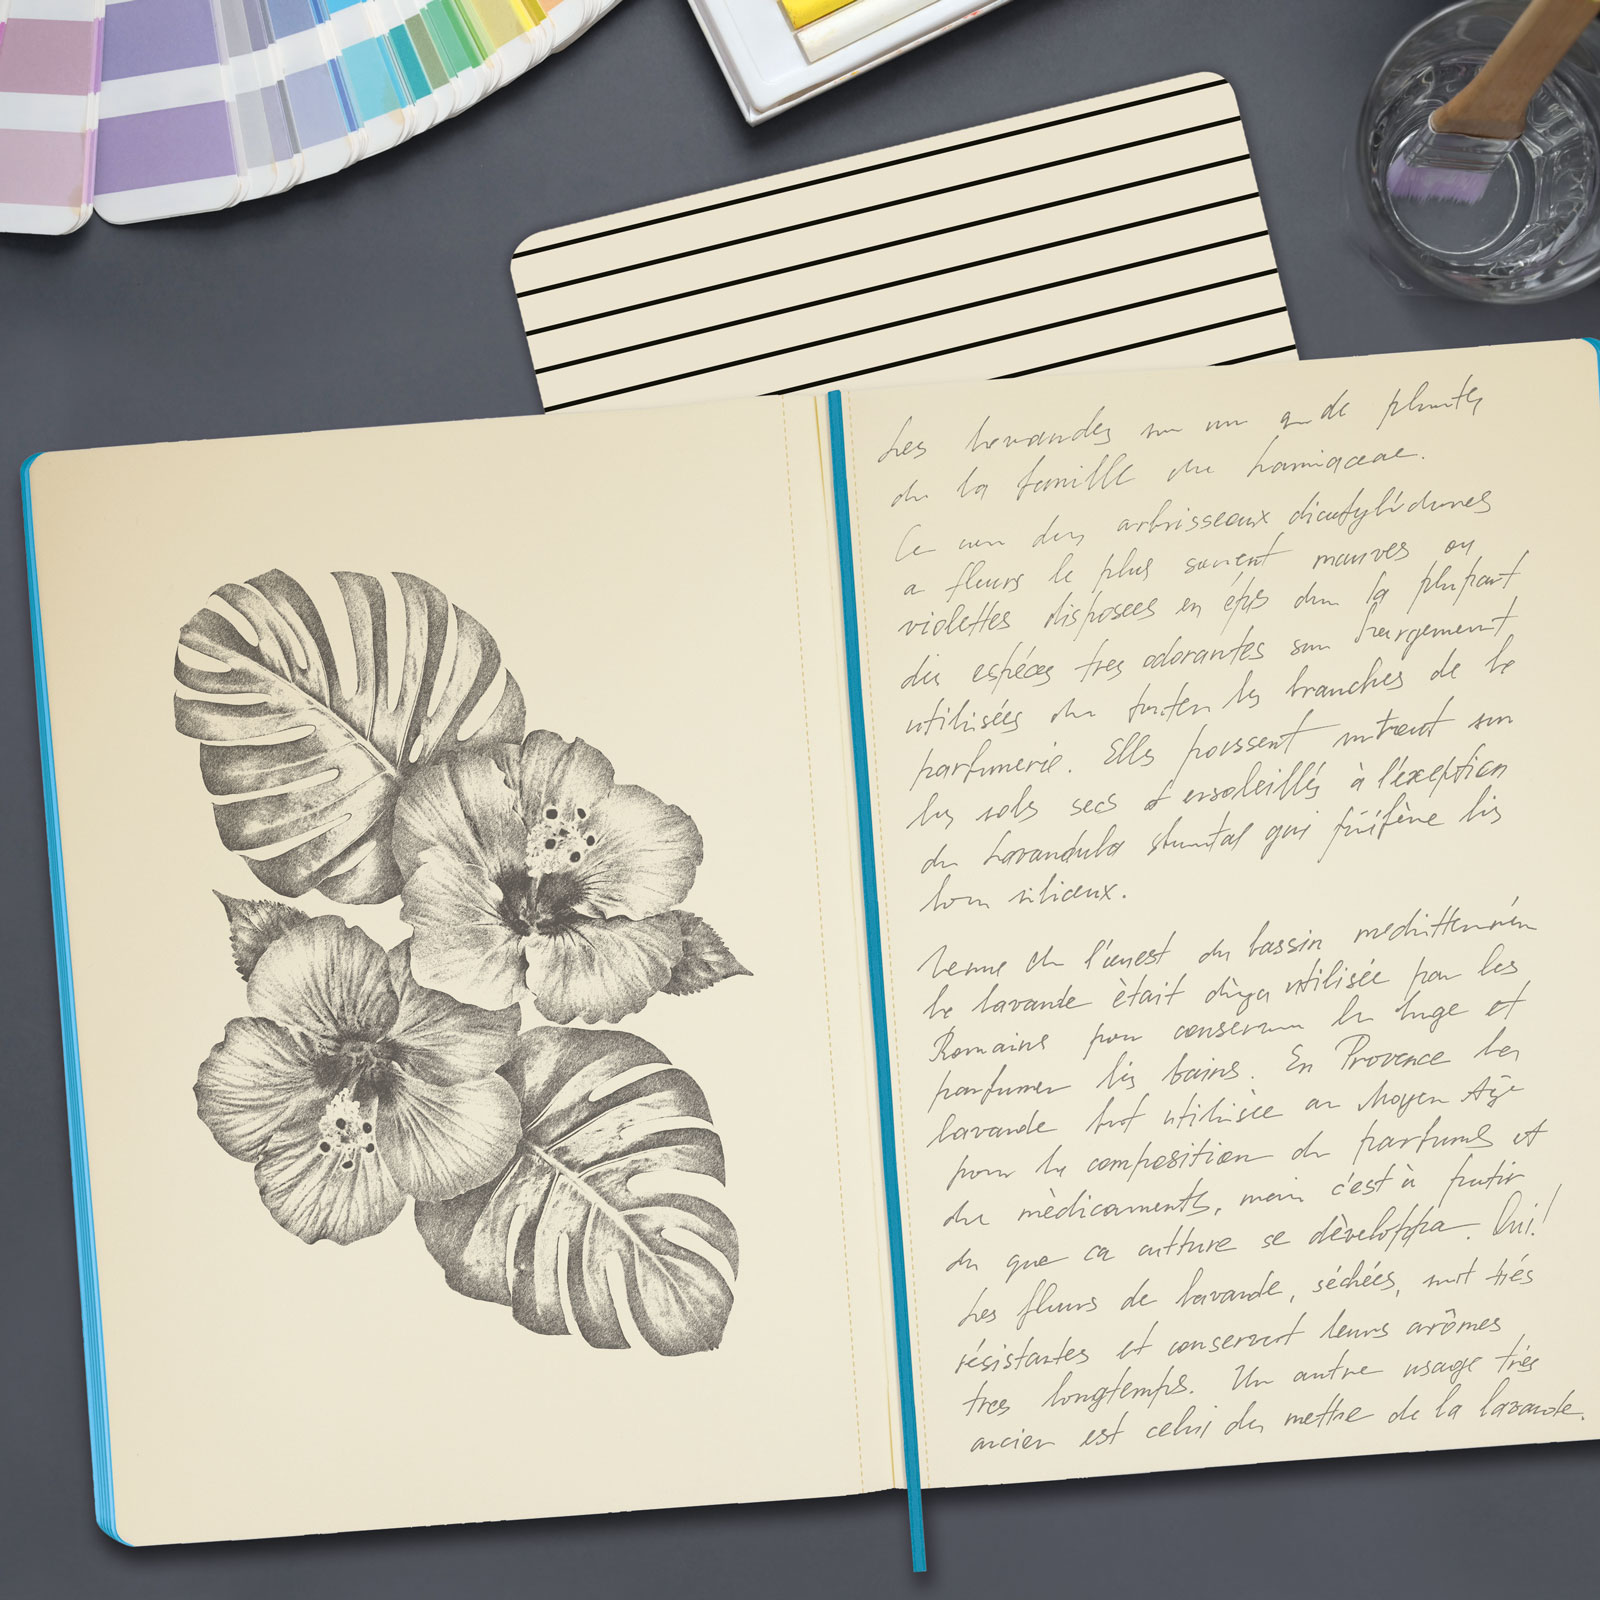 Les lavandes un de plantes
de la famille du Lamiaceae.
Ce des arbrisseaux dicotylédones
a fleurs le plus souvent mauves ou
violettes disposees en épis la plupart
des espéces tres odorantes largement
utilisées toutes les branches de la
parfumerie. Elles poussent surtout sur
les sols secs et ensoleillés à l'exeption
du Lavandula qui préfère les
siliceux.
Venue de l'ouest du bassin
la lavande ètait déja utilisée par les
Romains pour conserver le linge et
parfumer les bains. En Provence la
lavande fut utilisée au Moyen Age
pour la composition de parfums et
du mèdicaments, mais c'est à partir
du que ca culture se dèveloppa. Oui!
Les fleurs de lavande, séchées, sont trés
résistantes et conservent leurs arômes
tres longtemps. Un autre usage trés
ancien est celui de mettre de la lavande.